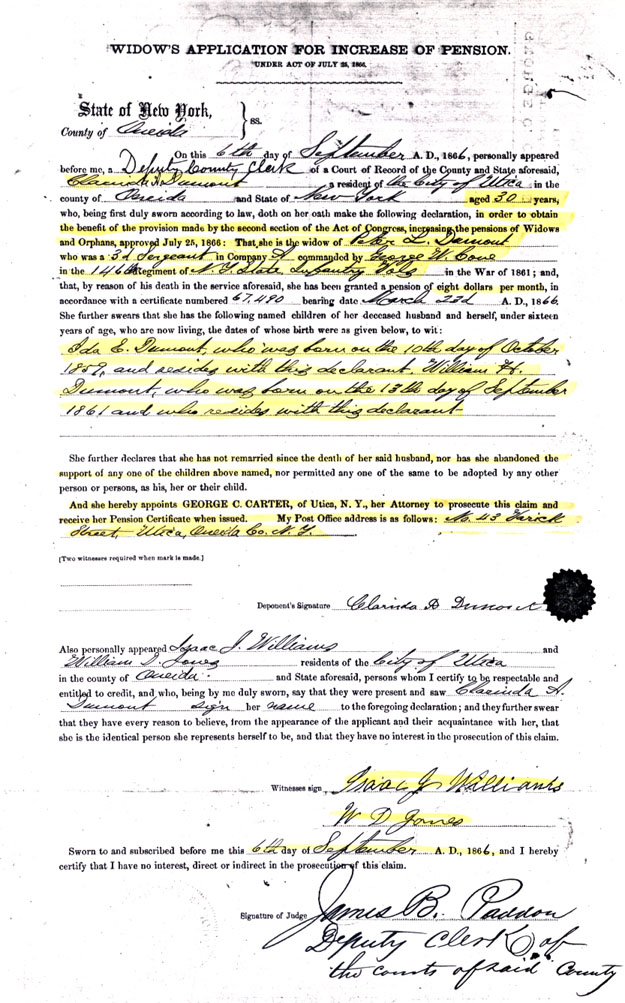 WIDOW'S APPLICATION FOR INCREASE OF PENSION.
UNDER ACT OF JULY 25, 1866.
State of New York,
County of Oneida } ss.
On this 6th day of September A. D., 1866, personally appeared
before me, a Deputy County Clerk of a Court of Record of the County and State aforesaid,
Clarinda A. Dumont a resident of the City of Utica in the
county of Oneida and State of New York aged 30 years,
who, being first duly sworn according to law, doth on her oath make the following declaration, in order to obtain
the benefit of the provision made by the second section of the Act of Congress, increasing the pensions of Widows
and Orphans, approved July 25, 1866: That she is the widow of Peter L. Dumont
who was a 3d Sergeant in Company A commanded by George W. Cone
in the 146th Regiment of N. Y. State Infantry Vols in the War of 1861; and,
that, by reason of his death in the service aforesaid, she has been granted a pension of eight dollars per month, in
accordance with a certificate numbered 67,490 bearing date March 23d A. D., 1866.
She further swears that she has the following named children of her deceased husband and herself, under sixteen
years of age, who are now living, the dates of whose birth were as given below, to wit:
Ida E. Dumont, who was born on the 10th day of October
1859, and resides with this declarant. William H.
Dumont, who was born on the 13th day of September
1861 and who resides with this declarant
She further declares that she has not remarried since the death of her said husband, nor has she abandoned the
support of any one of the children above named, nor permitted any one of the same to be adopted by any other
person or persons, as his, her or their child.
And she hereby appoints GEORGE C. CARTER, of Utica, N. Y., her Attorney to prosecute this claim and
receive her Pension Certificate when issued. My Post Office address is as follows: No. 43
Street, Utica, Oneida Co. N. Y.
[Two witnesses required when mark is made.]
Deponent's Signature Clarinda A Dumont
Also personally appeared Isaac J. Williams and
William D. Jones residents of the City of Utica
in the county of Oneida and State aforesaid, persons whom I certify to be respectable and
entitled to credit, and who, being by me duly sworn, say that they were present and saw Clarinda A.
Dumont sign her name to the foregoing declaration; and they further swear
that they have every reason to believe, from the appearance of the applicant and their acquaintance with her, that
she is the identical person she represents herself to be, and that they have no interest in the prosecution of this claim.
Witnesses sign Isaac J Williams
W D Jones
Sworn to and subscribed before me this 6th day of September A. D., 1866, and I hereby
certify that I have no interest, direct or indirect in the prosecution of this claim.
Signature of Judge James B. Paddon
Deputy Clerk of
the courts of said County